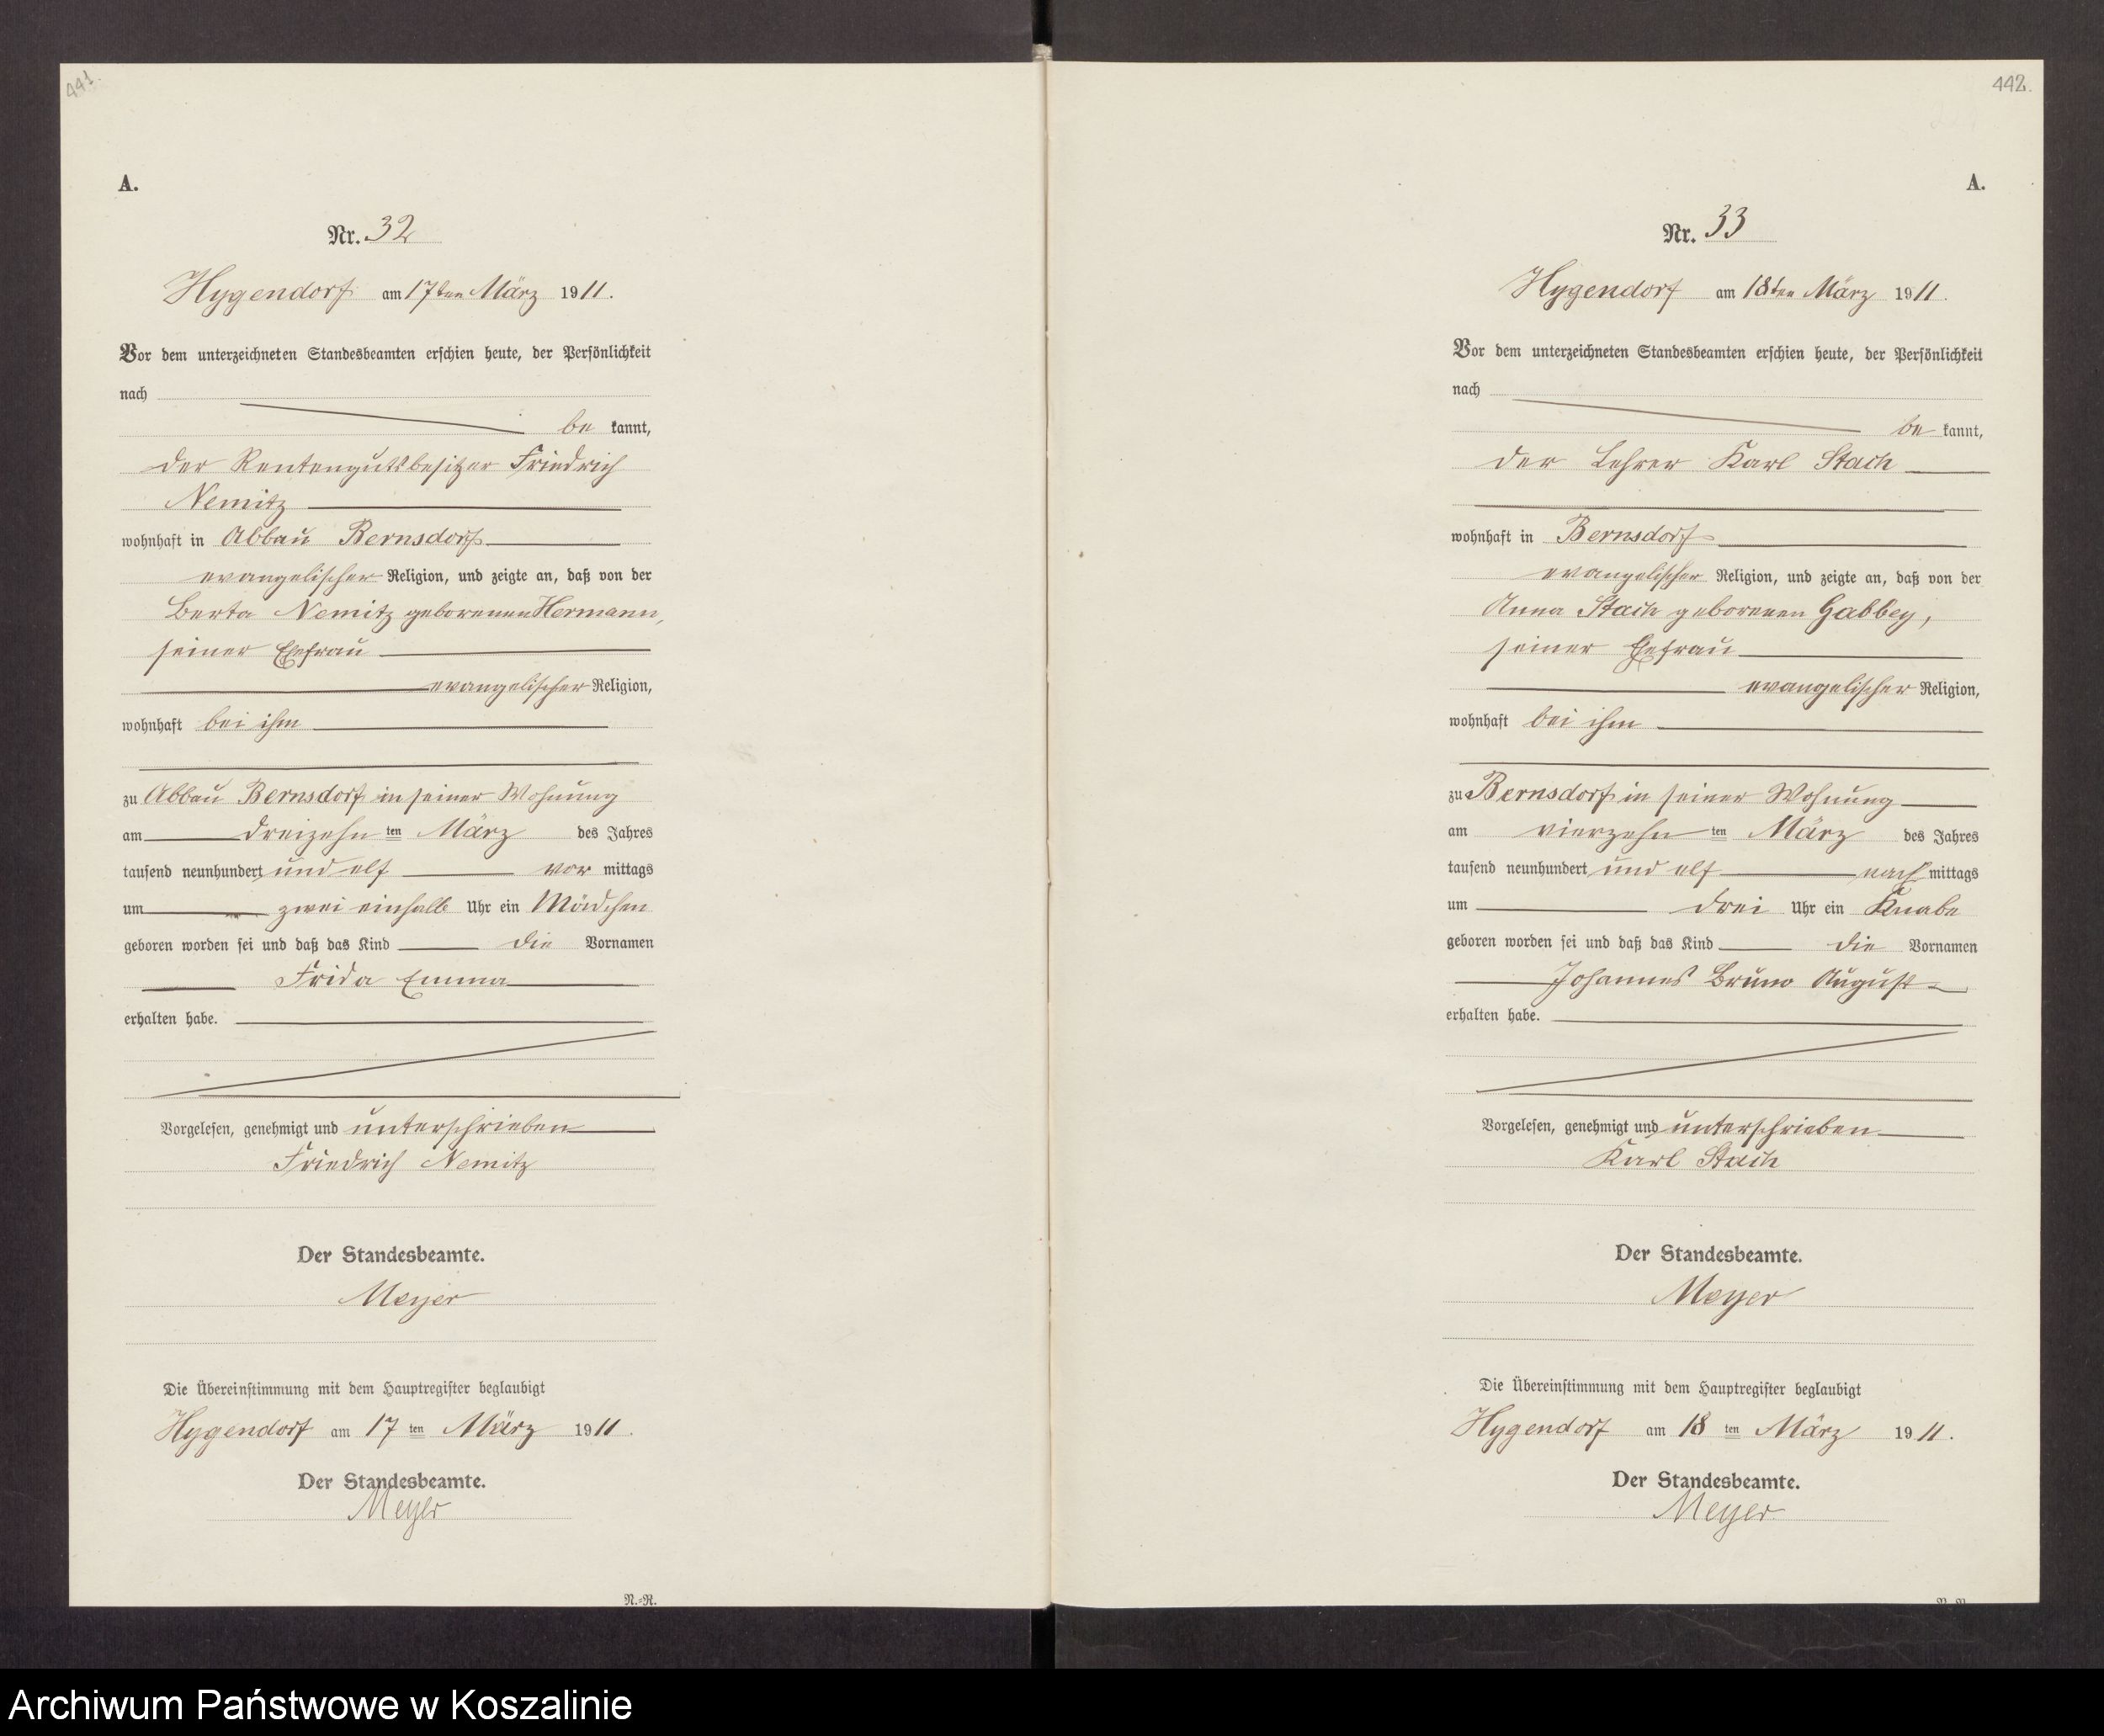 441.
A.
Nr. 32
Hygendorf am 17ten März 1911.
Vor dem unterzeichneten Standesbeamten erschien heute, der Persönlichkeit
nach
be kannt,
der Rentengutsbesitzer Friedrich
Nemitz
wohnhaft in Abbau Bernsdorf
evangelischer Religion, und zeigte an, daß von der
Berta Nemitz geborenen Hermann,
seiner Ehefrau
evangelischer Religion,
wohnhaft bei ihm
zu Abbau Bernsdorf in seiner Wohnung
am dreizehn ten März des Jahres
tausend neunhundert und elf vor mittags
um zwei einhalb Uhr ein Mädchen
geboren worden sei und daß das Kind die Vornamen
Frida Emma
erhalten habe.
Vorgelesen, genehmigt und unterschrieben
Friedrich Nemitz
Der Standesbeamte.
Meyer
Die Übereinstimmung mit dem Hauptregister beglaubigt
Hygendorf am 17 ten März 1911.
Der Standesbeamte.
Meyer
N.-R.
442.
A.
Nr. 33
Hygendorf am 18ten März 1911.
Vor dem unterzeichneten Standesbeamten erschien heute, der Persönlichkeit
nach
be kannt,
der Lehrer Karl Stach
wohnhaft in Bernsdorf
evangelischer Religion, und zeigte an, daß von der
Anna Stach geborenen Gabbey,
seiner Ehefrau
evangelischer Religion,
wohnhaft bei ihm
zu Bernsdorf in seiner Wohnung
am vierzehn ten März des Jahres
tausend neunhundert und elf nach mittags
um drei Uhr ein Knabe
geboren worden sei und daß das Kind die Vornamen
Johannes Bruno August
erhalten habe.
Vorgelesen, genehmigt und unterschrieben
Karl Stach
Der Standesbeamte.
Meyer
Die Übereinstimmung mit dem Hauptregister beglaubigt
Hygendorf am 18 ten März 1911.
Der Standesbeamte.
Meyer
Archiwum Państwowe w Koszalinie